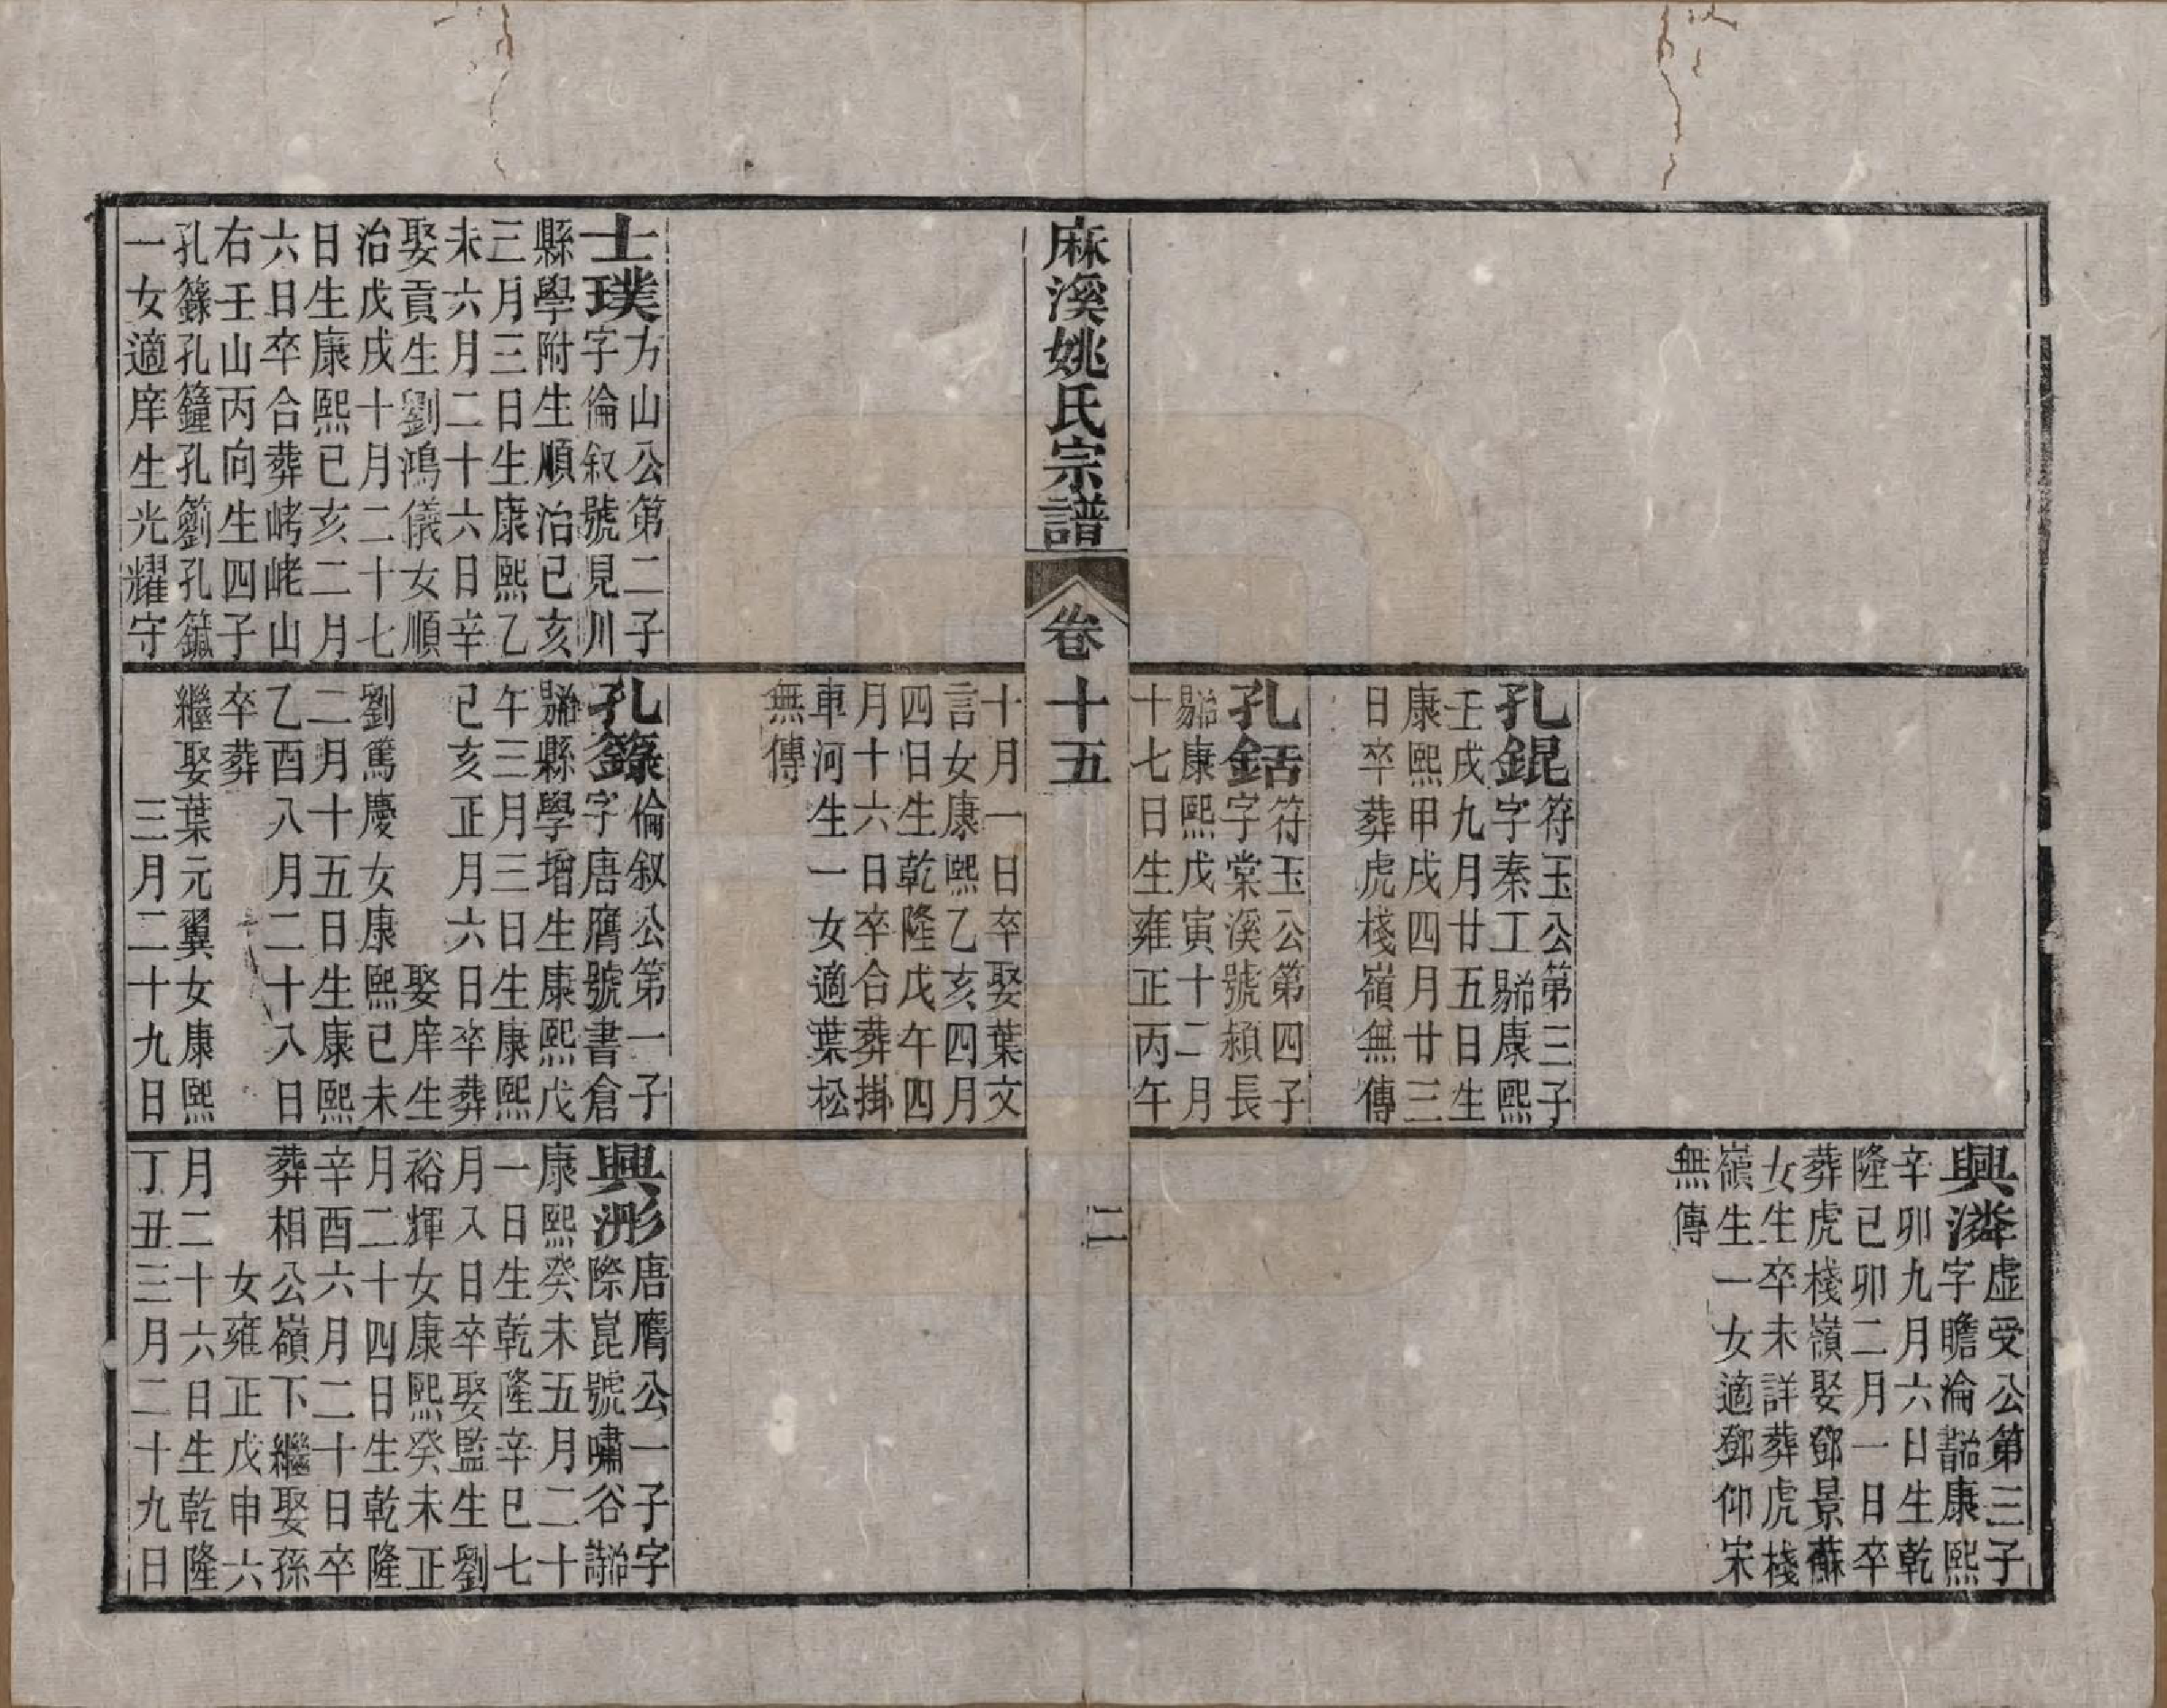 孔錕符玉公第三子
字秦工號康熙
壬戌九月廿五日生
康熙甲戌四月廿三
日卒葬虎棧嶺無傳
孔銛符玉公第四子
字棠溪號潁長
康熙戊寅十二月
十七日生雍正丙午
興潾虛受公第三子
字瞻淪康熙
辛卯九月六日生乾
隆己卯二月一日卒
葬虎棧嶺娶鄧景蘇
女生卒未詳葬虎棧
嶺生一女適鄧仰宋
無傳
麻溪姚氏宗譜
卷十五
二
士璞方山公第二子
字倫叙號見川
縣學附生順治己亥
三月三日生康熙乙
未六月二十六日辛
娶貢生劉鴻儀女順
治戊戌十月二十七
日生康熙己亥二月
六日卒合葬峠峔山
右壬山丙向生四子
孔籙孔鐘孔籥孔
一女適庠生光耀守
十月一日卒娶葉文
言女康熙乙亥四月
四日生乾隆戊午四
月十六日卒合葬掛
車河生一女適葉松
無傳
孔籙倫叙公第一子
字唐膺號書倉
縣學增生康熙戊
午三月三日生康熙
己亥正月六日卒葬
娶庠生
劉篤慶女康熙己未
二月十五日生康熙
乙酉八月二十八日
卒葬
繼娶葉元翼女康熙
三月二十九日
興浵唐膺公一子字
際崑號嘯谷
康熙癸未五月二十
一日生乾隆辛巳七
月八日卒娶監生劉
裕輝女康熙癸未正
月二十四日生乾隆
辛酉六月二十日卒
葬相公嶺下繼娶孫
女雍正戊申六
月二十六日生乾隆
丁丑三月二十九日